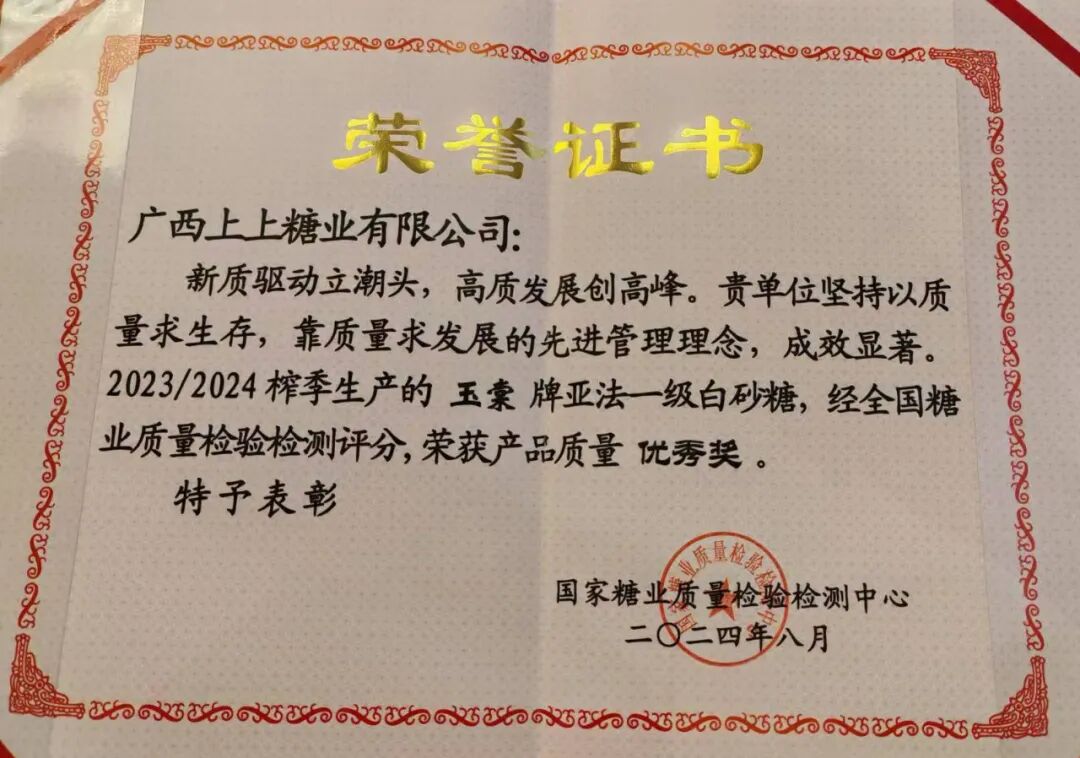 荣誉证书
广西上上糖业有限公司:
新质驱动立潮头，高质发展创高峰。贵单位坚持以质
量求生存，靠质量求发展的先进管理理念，成效显著。
2023/2024榨季生产的 玉棠 牌亚法一级白砂糖，经全国糖
业质量检验检测评分,荣获产品质量 优秀奖 。
特予表彰
国家糖业质量检验检测中心
国家糖业质量检验检测中心
二〇二四年八月